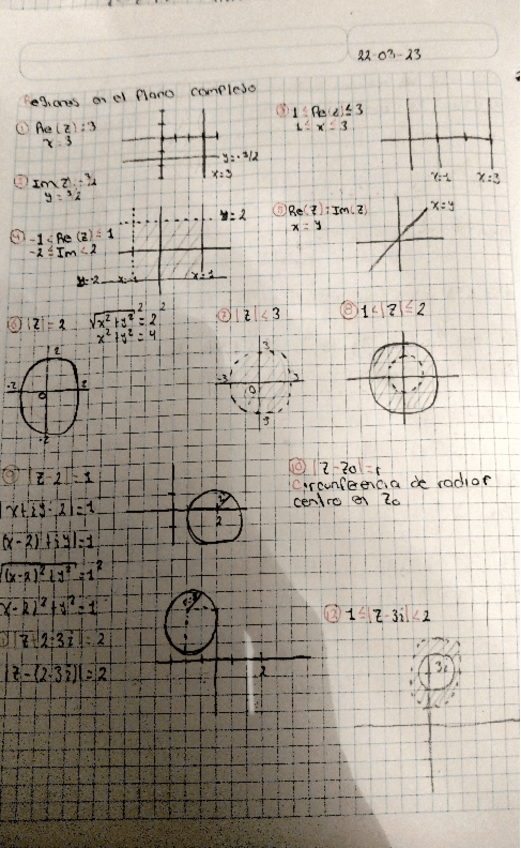 22-03-23
Regiones en el Plano complejo
① Re(z)=3
x=3
y=-3/2
x=3
② Im(z)=-3/2
y=-3/2
③ 1≤Re(z)≤3
1≤x≤3
x=1
x=3
④ -1<Re(z)≤1
-2≤Im<2
y=2
y=-2
x=-1
x=1
⑤ Re(z)=Im(z)
x=y
x=y
⑥ |z|=2
√x²+y²²=2²
x²+y²=4
2
-2
0
2
-2
⑦ |z|<3
3
-3
0
3
-3
⑧ 1<|z|≤2
⑨ |z-2|=1
|x+iy-2|=1
|(x-2)+iy|=1
√(x-2)²+y²=1²
(x-2)²+y²=1
2
⑩ |z-z0|=r
Circunferencia de radio r
centro en z0
|z+2-3i|=2
|z-(-2+3i)|=2
2
⑫ 1≤|z-3i|<2
3i